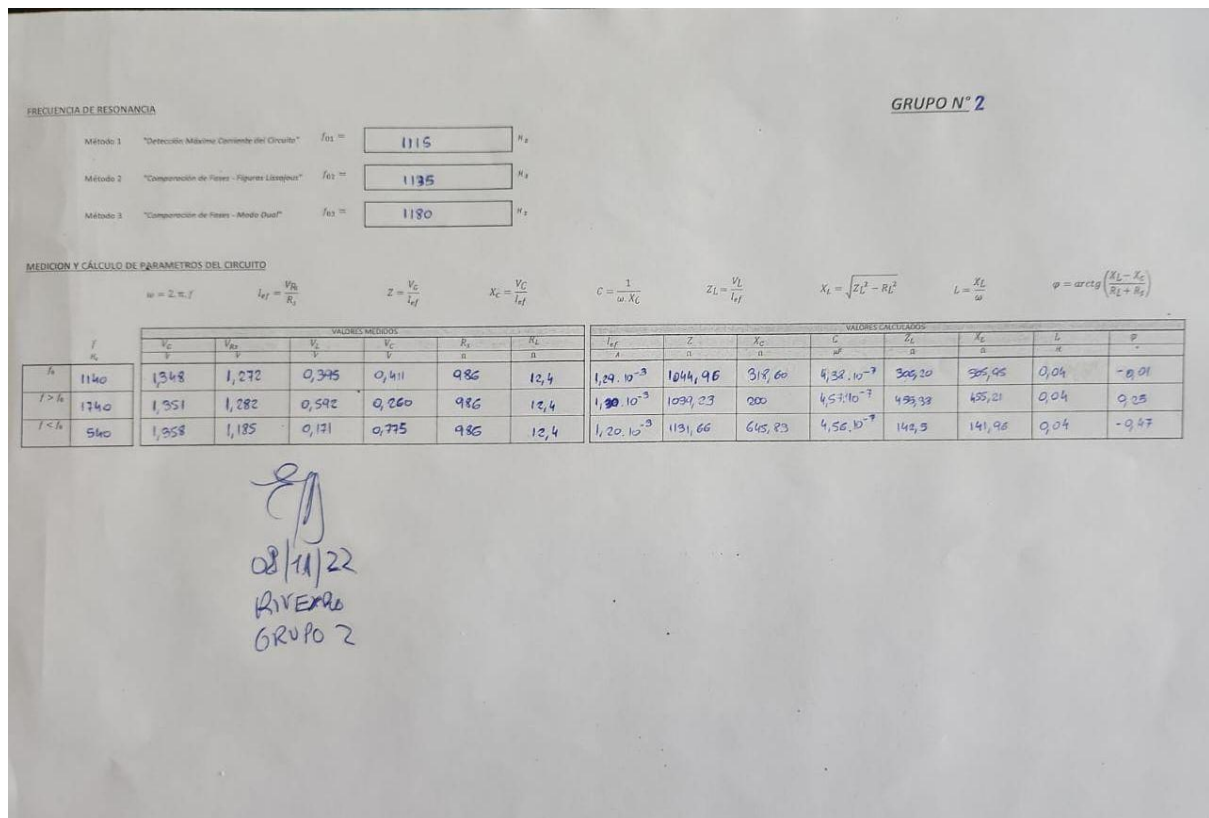 GRUPO N° 2
FRECUENCIA DE RESONANCIA
Método 1 "Detección Máxima Corriente del Circuito" f01 = 1115 Hz
Método 2 "Comparación de Fases - Figuras Lissajous" f02 = 1135 Hz
Método 3 "Comparación de Fases - Modo Dual" f03 = 1180 Hz
MEDICION Y CÁLCULO DE PARAMETROS DEL CIRCUITO
ω = 2.π.f Ief = VRs / Rs Z = VG / Ief XC = VC / Ief C = 1 / ω.XC ZL = VL / Ief XL = √(ZL² - RL²) L = XL / ω φ = arctg((XL - XC) / (RL + Rs))
VALORES MEDIDOS VALORES CALCULADOS
f VG VRs VL VC Rs RL Ief Z XC C ZL XL L φ
Hz V V V V Ω Ω A Ω Ω μF Ω Ω H °
f0 1140 1,348 1,272 0,395 0,411 986 12,4 1,29.10⁻³ 1044,96 318,60 4,38.10⁻⁷ 306,20 305,95 0,04 -0,01
f > f0 1740 1,351 1,282 0,592 0,260 986 12,4 1,30.10⁻³ 1039,23 200 4,57.10⁻⁷ 455,38 455,21 0,04 0,25
f < f0 540 1,358 1,185 0,171 0,775 986 12,4 1,20.10⁻³ 1131,66 645,83 4,56.10⁻⁷ 142,5 141,96 0,04 -0,47
08/11/22
RIVERO
GRUPO 2